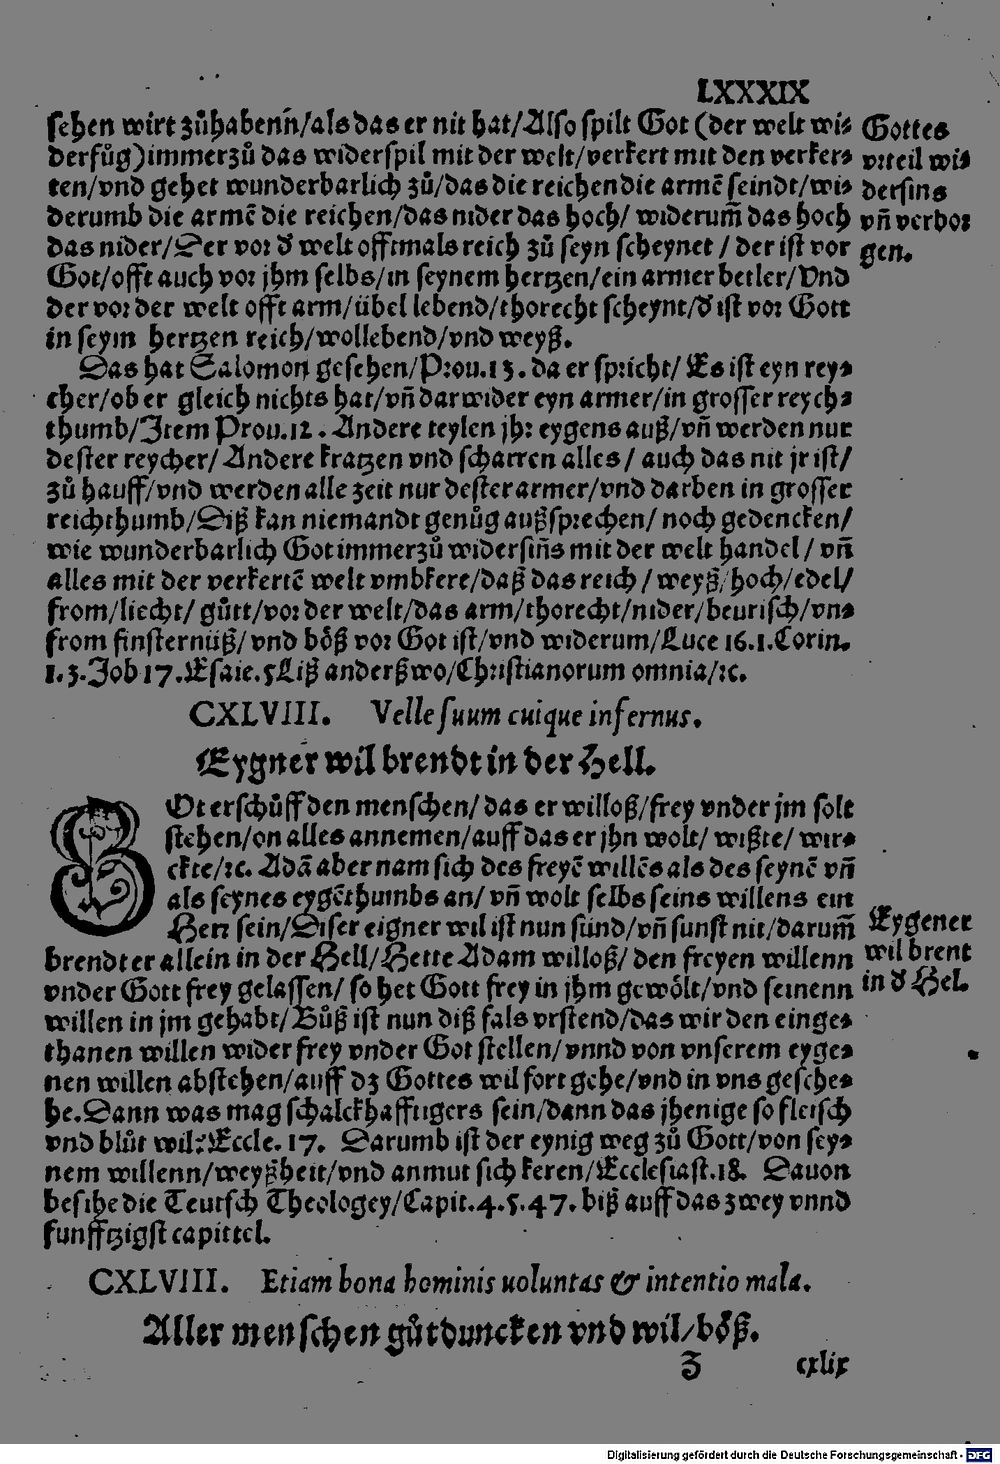 LXXXIX
sehen wirt zůhabenn̄/als das er nit hat/Also spilt Got (der welt wi⸗
derfůg)immerzů das widerspil mit der welt/verkert mit den verker⸗
ten/vnd gehet wunderbarlich zů/das die reichen die armē seindt/wi⸗
derumb die armē die reichen/das nider das hoch/ widerum̄ das hoch
das nider/Der vor d' welt offtmals reich zů seyn scheynet / der ist vor
Got/offt auch vor jhm selbs/in seynem hertzen/ein armer betler/Vnd
der vor der welt offt arm/übel lebend/thorecht scheynt/d' ist vor Gott
in seym hertzen reich/wollebend/vnd weyß.
Das hat Salomon gesehen/Prou.13. da er spricht/ Es ist eyn rey⸗
cher/ob er gleich nichts hat/vn̄ darwider eyn armer/in grosser reych⸗
thumb/Item Prou.12. Andere teylen jhr eygens auß/vn̄ werden nur
dester reycher/ Andere kratzen vnd scharren alles / auch das nit jr ist/
zů hauff/vnd werden alle zeit nur dester armer/vnd darben in grosser
reichthumb/Diß kan niemandt genůg außsprechen/ noch gedencken/
wie wunderbarlich Got immerzů widersin̄s mit der welt handel / vn̄
alles mit der verkertē welt vmbkere/daß das reich / weyß/hoch/edel/
from/liecht/ gůtt/vor der welt/das arm/thorecht/nider/beurisch/vn⸗
from finsternüß/ vnd böß vor Got ist/vnd widerum/Luce 16.1.Corin.
1.3.Job 17.Esaie.5Liß anderßwo/Christianorum omnia/ꝛc.
Gottes
vrteil wi⸗
dersins
vn̄ verbor
gen.
CXLVIII. Velle suum cuique infernus.
Eygner wil brendt in der Hell.
GOt erschůff den menschen/ das er willoß/frey vnder jm solt
stehen/on alles annemen/auff das er jhn wolt/ wißte/ wir⸗
ckte/ꝛc. Adā aber nam sich des freyē willēs als des seynē vn̄
als seynes eygēthumbs an/ vn̄ wolt selbs seins willens ein
Herr sein/Diser eigner wil ist nun sünd/vn̄ sunst nit/darum̄
brendt er allein in der Hell/Hette Adam willoß/ den freyen willenn
vnder Gott frey gelassen/ so het Gott frey in jhm gewölt/vnd seinenn
willen in jm gehabt/Bůß ist nun diß fals vrstend/das wir den einge⸗
thanen willen wider frey vnder Got stellen/vnnd von vnserem eyge⸗
nen willen abstehen/auff dz Gottes wil fort gehe/vnd in vns gesche⸗
he.Dann was mag schalckhafftigers sein/dann das jhenige so fleisch
vnd blůt wil?Eccle.17. Darumb ist der eynig weg zů Gott/von sey⸗
nem willenn/weyßheit/vnd anmut sich keren/Ecclesiast.18. Dauon
besihe die Teutsch Theologey/Capit.4.5.47.biß auff das zwey vnnd
funfftzigst capittel.
Eygener
wil brent
in d' Hel.
CXLVIII. Etiam bona hominis uoluntas & intentio mala.
Aller menschen gůtduncken vnd wil/böß.
Z cxlix
Digitalisierung gefördert durch die Deutsche Forschungsgemeinschaft - DFG